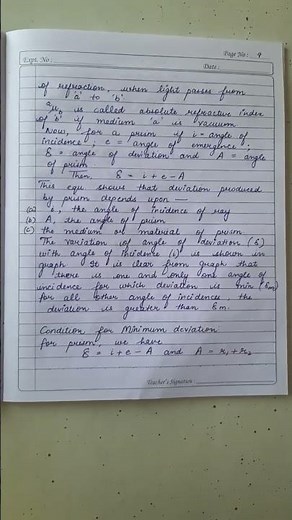 Page No: 9
Expt. No.
Date:
of refraction, when light passes from
'a' to 'b'
ᵃμ_b is called absolute refractive index
of 'b' if medium 'a' is vacuum
Now, for a prism if i = angle of
incidence ; e = angle of emergence ;
δ = angle of deviation and A = angle
of prism
Then δ = i + e - A
This equ shows that deviation produced
by prism depends upon —
(a) i, the angle of incidence of ray
(b) A, the angle of prism
(c) the medium or material of prism
The variation of angle of deviation (δ)
with angle of incidence (i) is shown in
graph. It is clear from graph that
there is one and only one angle of
incidence for which deviation is min (δm)
for all other angle of incidences, the
deviation is greater than δm.
Condition for Minimum deviation
for prism, we have
δ = i + e - A and A = r₁ + r₂
Teacher's Signature